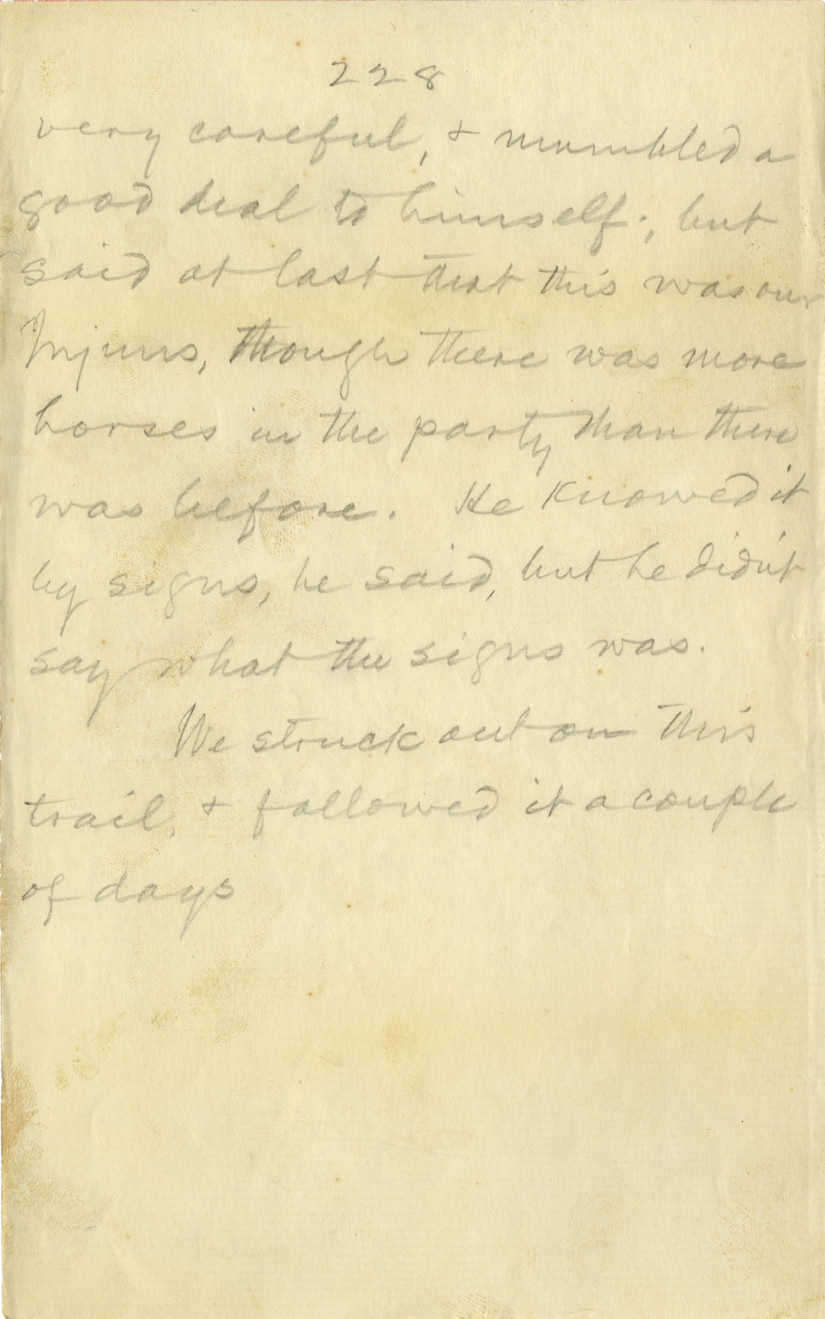 228
very careful, & mumbled a
good deal to himself; but
said at last that this was our
Injuns, though there was more
horses in the party than there
was before. He knowed it
by signs, he said, but he didn't
say what the signs was.
We struck out on this
trail, & followed it a couple
of days